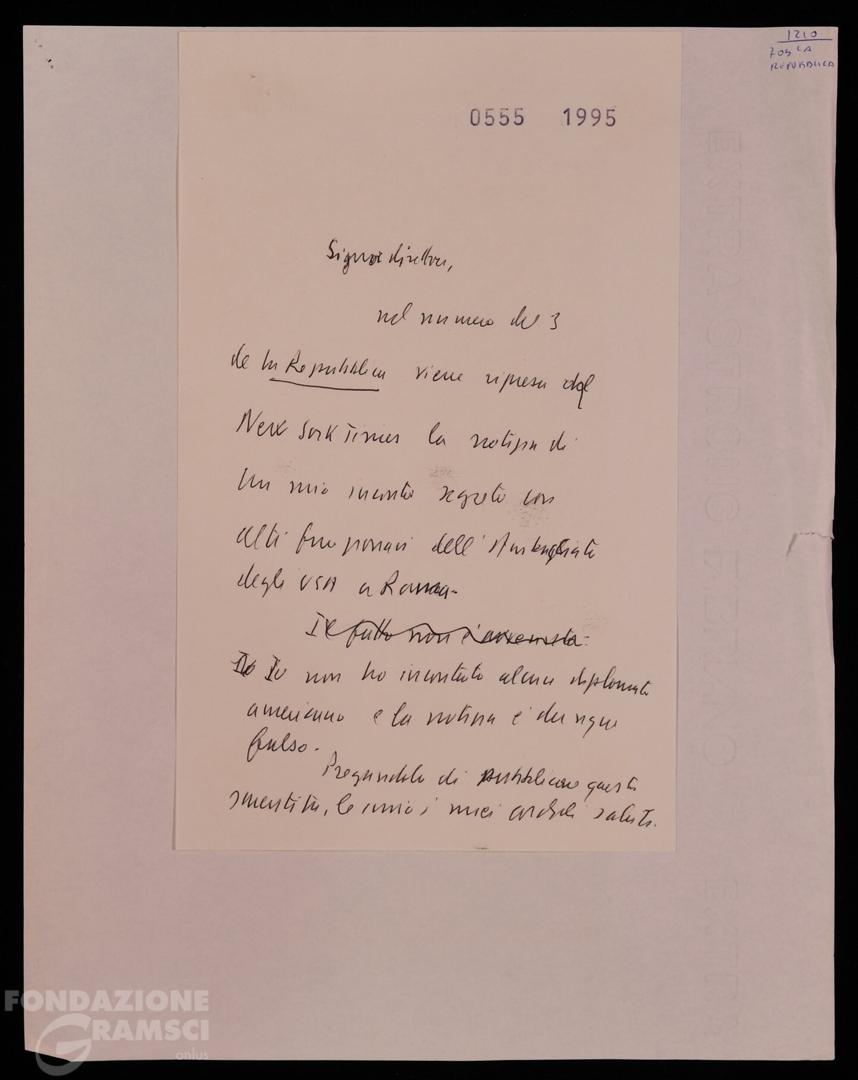 1210
705 LA
REPUBBLICA
0555 1995
Signor direttore,
nel numero del 3
de la Repubblica viene ripresa dal
New York Times la notizia di
un mio incontro segreto con
alti funzionari dell'Ambasciata
degli USA a Roma.
Il fatto non è avvenuto.
Io Io non ho incontrato alcun diplomatico
americano e la notizia è dunque
falsa.
Pregandola di pubblicare questa
smentita, le invio i miei cordiali saluti.
EXTRA STRONG
FONDAZIONE
GRAMSCI
onlus